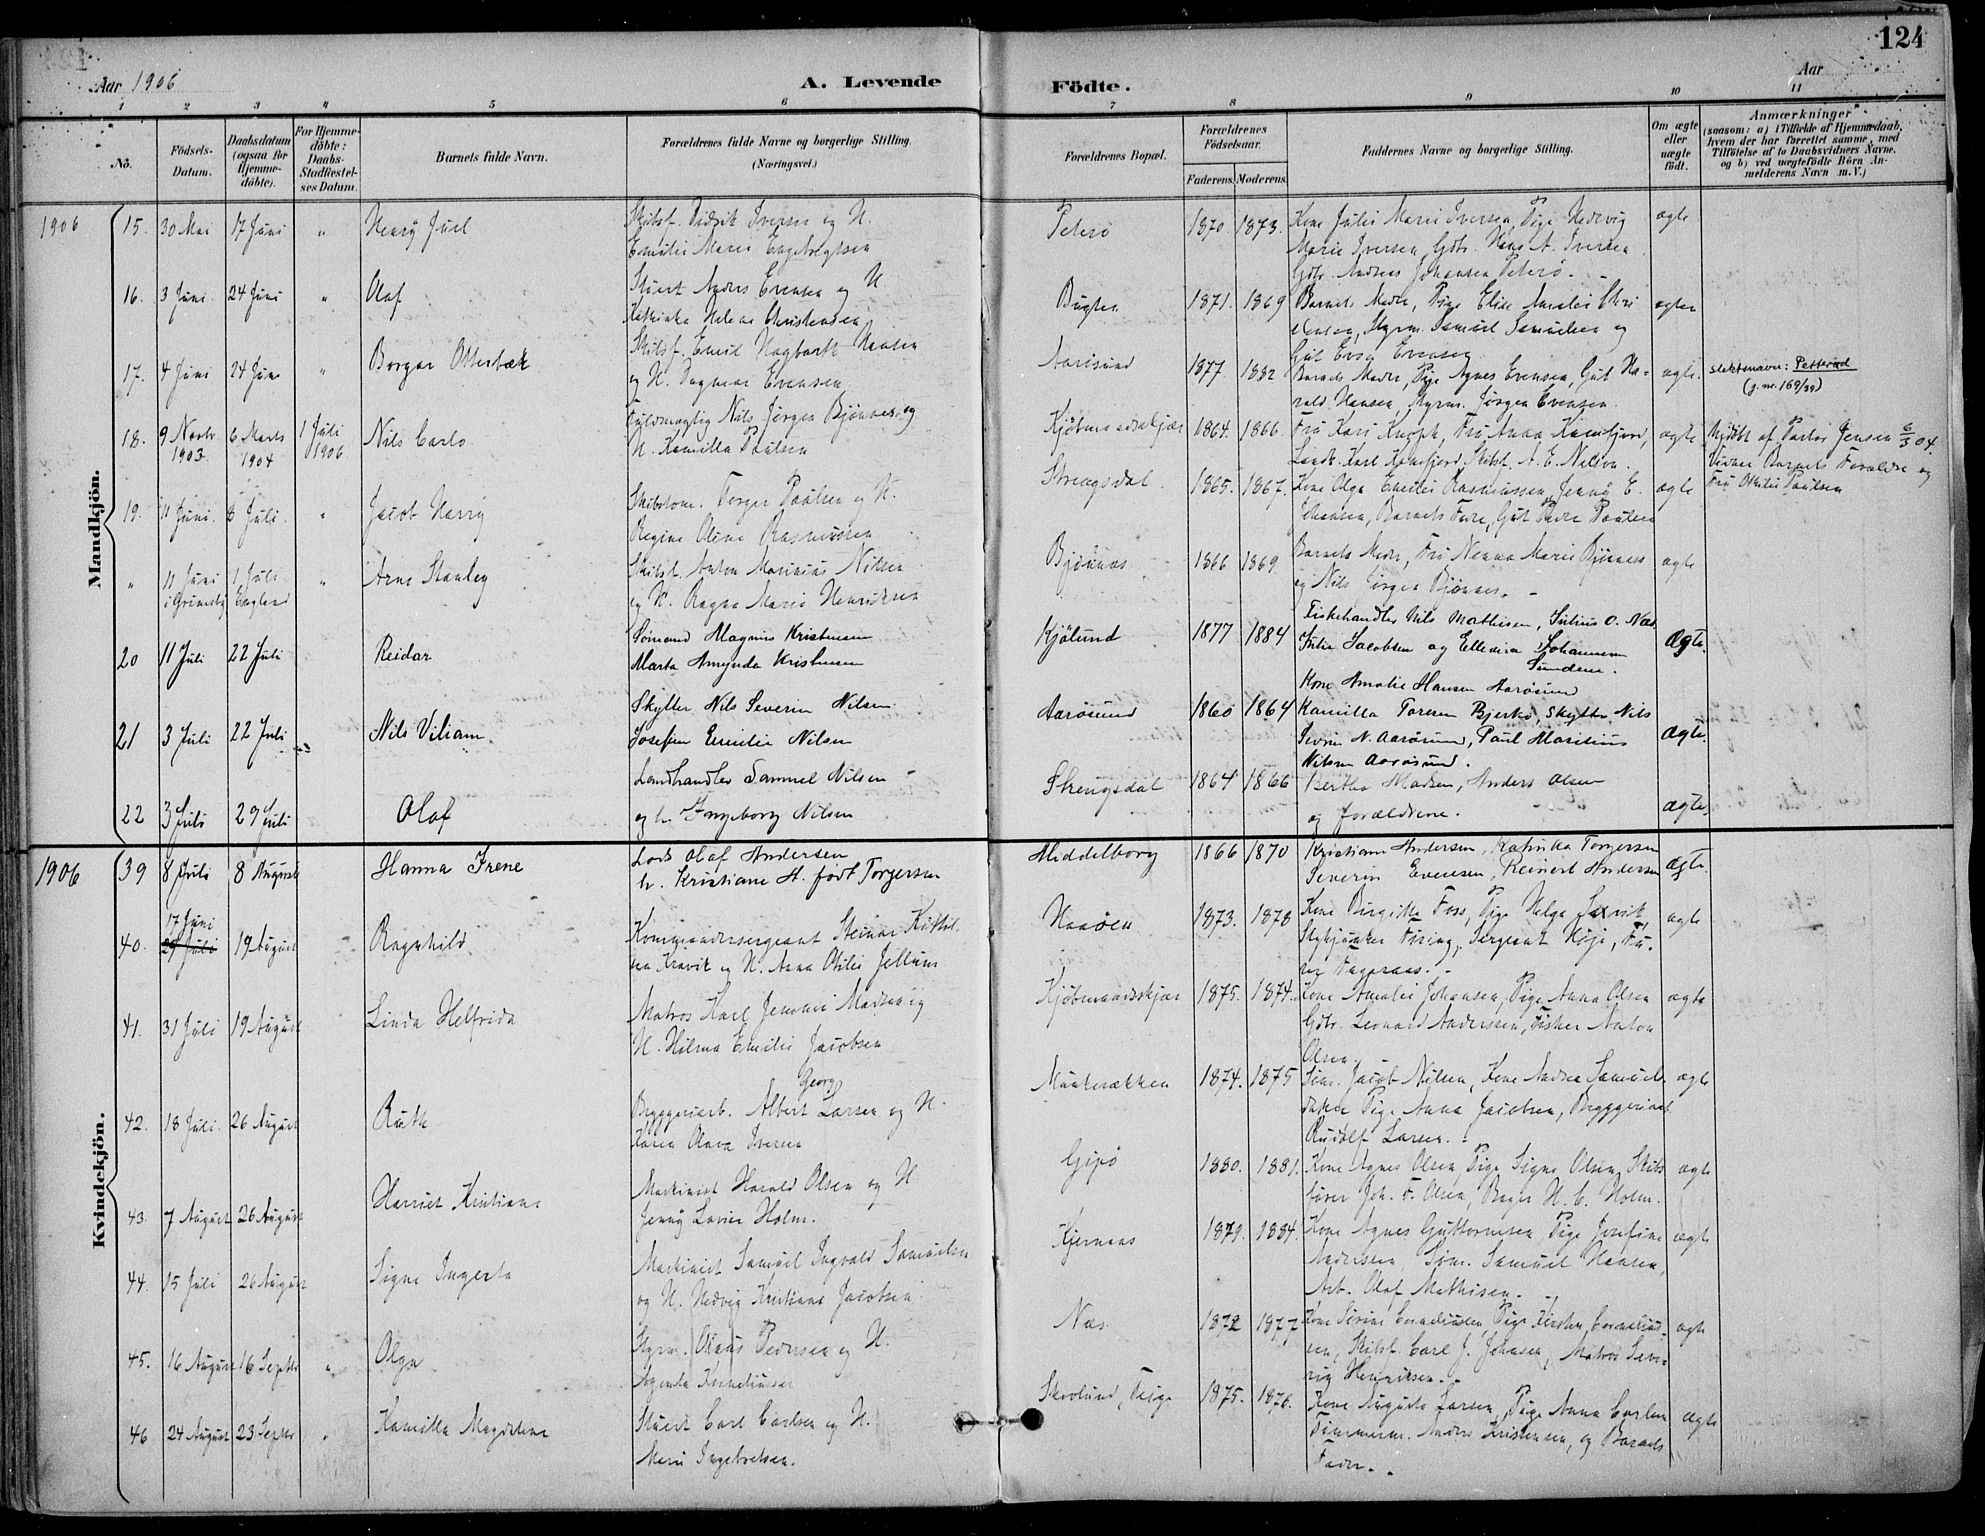 124
Aar 1906
A. Levende
Födte.
Aar
1 2 3 4 5 6 7 8 9 10 11
No.
Födsels-Datum.
Daabsdatum (ogsaa for Hjemmedöbte).
For Hjemmedöbte: Daabs-Stadfæstelses Datum.
Barnets fulde Navn.
Forældrenes fulde Navne og borgerlige Stilling.
(Næringsvei.)
Forældrenes Bopæl.
Forældrenes Födselsaar.
Faderens. Moderens.
Faddernes Navne og borgerlige Stilling.
Om ægte eller uægte födt.
Anmærkninger
(saasom: a) i Tilfælde af Hjemmedaab, hvem der har forrettet samme, med Tilföielse af to Daabsvidners Navne, og b) ved uægtefödte Börn Anmelderens Navn m.V.)
Mandkjön.
1906 15. 30 Mai 17 Juni " Henry Juel Skibsf. Didrik Iversen og H. Peterö 1870 1873. Kone Julie Marie Iversen, Pige Hedvig ægte
Emilie Marie Engebregtsen Marie Iversen, Gbr. Hans A. Iversen
Gbr. Andreas Johansen Peterö.
16. 3 Juni 24 Juni " Olaf Stuert Anders Evensen og H. Bugten 1871. 1869 Barnets Moder, Pige Elise Amalie Chri ægte
Kathinka Helene Christensen stensen, Styrm. Samuel Samuelsen og
Gut Evensen
17. 4 Juni 24 Juni " Borgar Otterbæk Skibsf. Emil Hagbarth Hansen Aarösund 1877 1882 Barnets Moder, Pige Agnes Evensen, Gut Ha- ægte. slektsnavn: Petterød
og H. Dagmar Evensen rald Hansen, Styrm. Jörgen Evensen. (j.nr. 169/39)
18. 9 Novbr. 1903. 6 Marts 1904 1 Juli 1906 Nils Carlo Fuldmægtig Nils Jörgen Bjönnes og Kjöbmandskjær 1864. 1866. Fru Kari Knoph, Fru Anna Kamfjord, ægte Hjdöbt af Pastor Jensen 6/3 04.
H. Kamilla Paulsen Landh. Karl Kamfjord, Skibsf. A. E. Vidner Barnets Forældre og
Fru Ottilie Paulsen
19. 11 Juni. 8 Juli. " Jacob Harry Skibstöm. Torger Paulsen og H. Strengsdal 1865. 1867. Kone Olga Emilie Rasmussen, Jenny E. ægte
Regine Oline Rasmussen Johansen, Barnets Fader, Gut Peder Paulsen
" 11 Juni i Grimsby 1 Juli England " Arne Stanley Skibsf. Anton Marinius Nilsen Bjönnes 1866 1869 Barnets Moder, Fru Nanna Marie Bjönness ægte
og H. Ragna Marie Henriksen og Nils Jörgen Bjönnes.
20 11 Juli 22 Juli Reidar Sömand Magnus Kristensen Kjölund 1877 1884 Fiskehandler Nils Mathisen, Julius O. Næs ægte.
Marta Amanda Kristensen Julie Jacobsen og Johannesen
Sundene.
21 3 Juli 22 Juli Nils Viliam Skytter Nils Severin Nilsen Aarösund 1860 1864 Kone Amalie Hansen Aarösund ægte.
Josefine Emilie Nilsen Kamilla Toresen Bjerkö, Skytter Nils
Sevrin N. Aarösund, Paul Maritius
Nilsen Aarösund.
22 3 Juli 29 Juli Olaf Landhandler Samuel Nilsen Strengsdal 1864 1866 Bertha Madsen, Anders Olsen ægte.
og h. Ingeborg Nilsen og forældrene.
Kvindekjön.
1906 39 8 Juli 8 August Hanna Irene Lods Olaf Andersen Middelborg 1866 1870 Kristiane Andersen, Katinka Torgersen ægte.
h. Kristiane H. födt Torgersen Severin Evensen, Reinert Andersen
40. 17 Juni 29 Juli 19 August Ragnhild Kommandersergeant Steinar Kittil Haaöen 1873. 1878 Kone Birgitte Foss, Pige Helga ægte
sen Kravik og H. Anna Otilie Jellum Stykjunker Firing, Sergeant Köje, Fu-
rer Fageraas.
41. 31 Juli 19 August Linda Helfrida Matros Karl Madsen og Kjöbmandsskjær 1875. 1874. Kone Amalie Johansen, Pige Anna Olsen ægte
H. Hilma Emilie Jacobsen Gbr. Leonard Anderssen, Fisker Anton
Olsen.
42. 18 Juli. 26 August Ruth Bryggeriarb. Albert Georg Larsen og H. Munkerækken 1874. 1875 Söm. Jacob Nilsen, Kone Andrea Samuels ægte
Karen Olava Iversen datter, Pige Anna Jacobsen, Bryggeriarb.
Rudolf Larsen.
43. 7 August 26 August Harriet Kristiane Maskinist Harald Olsen og H. Gipö 1880. 1881. Kone Agnes Olsen, Pige Signe Olsen, Skibs ægte
Jenny Lovise Holm. förer Joh. F. Olsen, Bager H. C. Holm.
44. 15 Juli 26 August Signe Ingerta Maskinist Samuel Ingvald Samuelsen Kjernaas 1879. 1884. Kone Agnes Guttormsen, Pige Josefine ægte
og H. Hedvig Kristiane Jacobsen Anderssen, Söm. Samuel Hansen,
Arb. Olaf Mathisen.
45. 16 August 16 Septbr " Olga Styrm. Olaus Pedersen og H. Næs 1872 1877 Kone Corneliussen, Pige Kirsten Cornelius- ægte
Agenta Korneliussen sen, Skibsf. Carl J. Johansen, Matros
Henriksen.
46 24 August 23 Septbr " Kamilla Magdalene Stuert Carl Carlsen og H. Skovlund, Teige 1875. 1876. Kone Augusta Larsen, Pige Anna Carlsen ægte
Marie Ingebretsen. Tömmerm. Anders Kristensen, og Barnets
Fader.